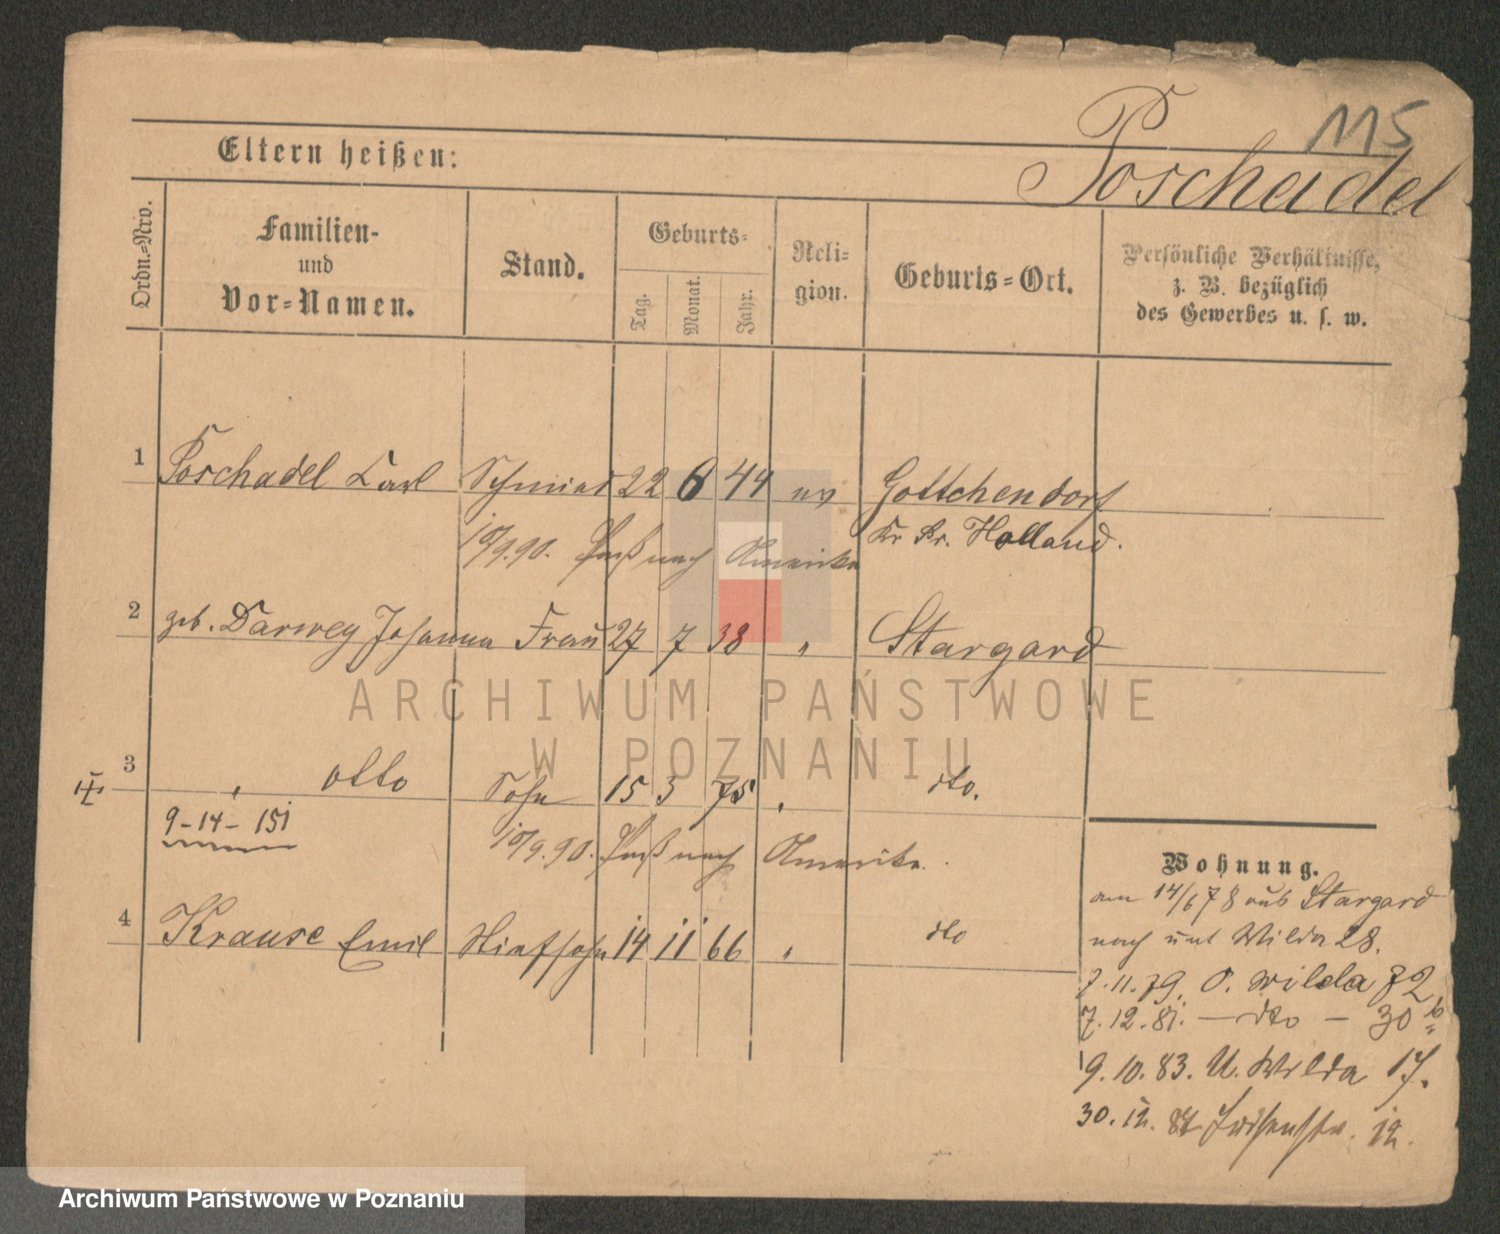 115
Eltern heißen:
Poschadel
Ordn.=Nro.
Familien-
und
Vor=Namen.
Stand.
Geburts=
Tag.
Monat.
Jahr.
Reli=
gion.
Geburts=Ort.
Persönliche Verhältnisse,
z. B. bezüglich
des Gewerbes u. s. w.
1 Poschadel Carl Schmied 22 6 44 ev Gottchendorf
Kr Pr. Holland.
10/9.90. Paß nach Amerika
2 geb. Darwey Johanna Frau 27 7 38 " Stargard
ARCHIWUM PAŃSTWOWE
W POZNANIU
3 " otto Sohn 15 3 75 " dto.
9-14-151
10/9.90. Paß nach Amerika.
4 Krause Emil Stiefsohn 14 11 66 " dto
Wohnung.
am 14/6 78 aus Stargard
nach unt Wilda 28.
7.11.79. O. Wilda 72
7.12.81. — dto — 30
9.10.83. U. Wilda 17.
30.12. 12.
Archiwum Państwowe w Poznaniu